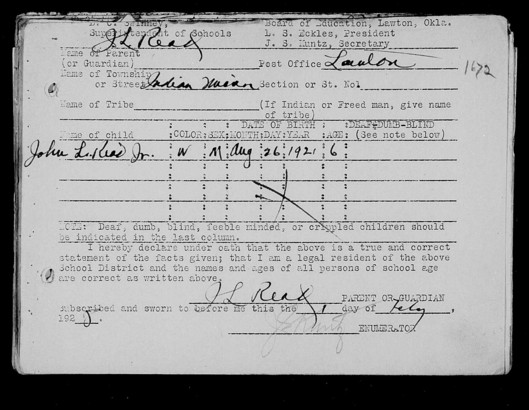 Superintendent of Schools Board of Education, Lawton, Okla.
L. S. Eckles, President
J. S. Muntz, Secretary
Name of Parent J L Read
(or Guardian) Post Office Lawton
Name of Township
or Street Indian Section or St. No1 1672
Name of Tribe (If Indian or Freed man, give name
of tribe)
DATE OF BIRTH DEAF-DUMB-BLIND
Name of child :COLOR:SEX:MONTH:DAY:YEAR :AGE: (See note below)
John L. Read Jr. W M Aug 26 1921 6
NOTE: Deaf, dumb, blind, feeble minded, or crippled children should
be indicated in the last column.
I hereby declare under oath that the above is a true and correct
statement of the facts given; that I am a legal resident of the above
School District and the names and ages of all persons of school age
are correct as written above.
J L Read PARENT OR GUARDIAN
Subscribed and sworn to before me this the 1 day of Feby ,
192 8 .
ENUMERATOR